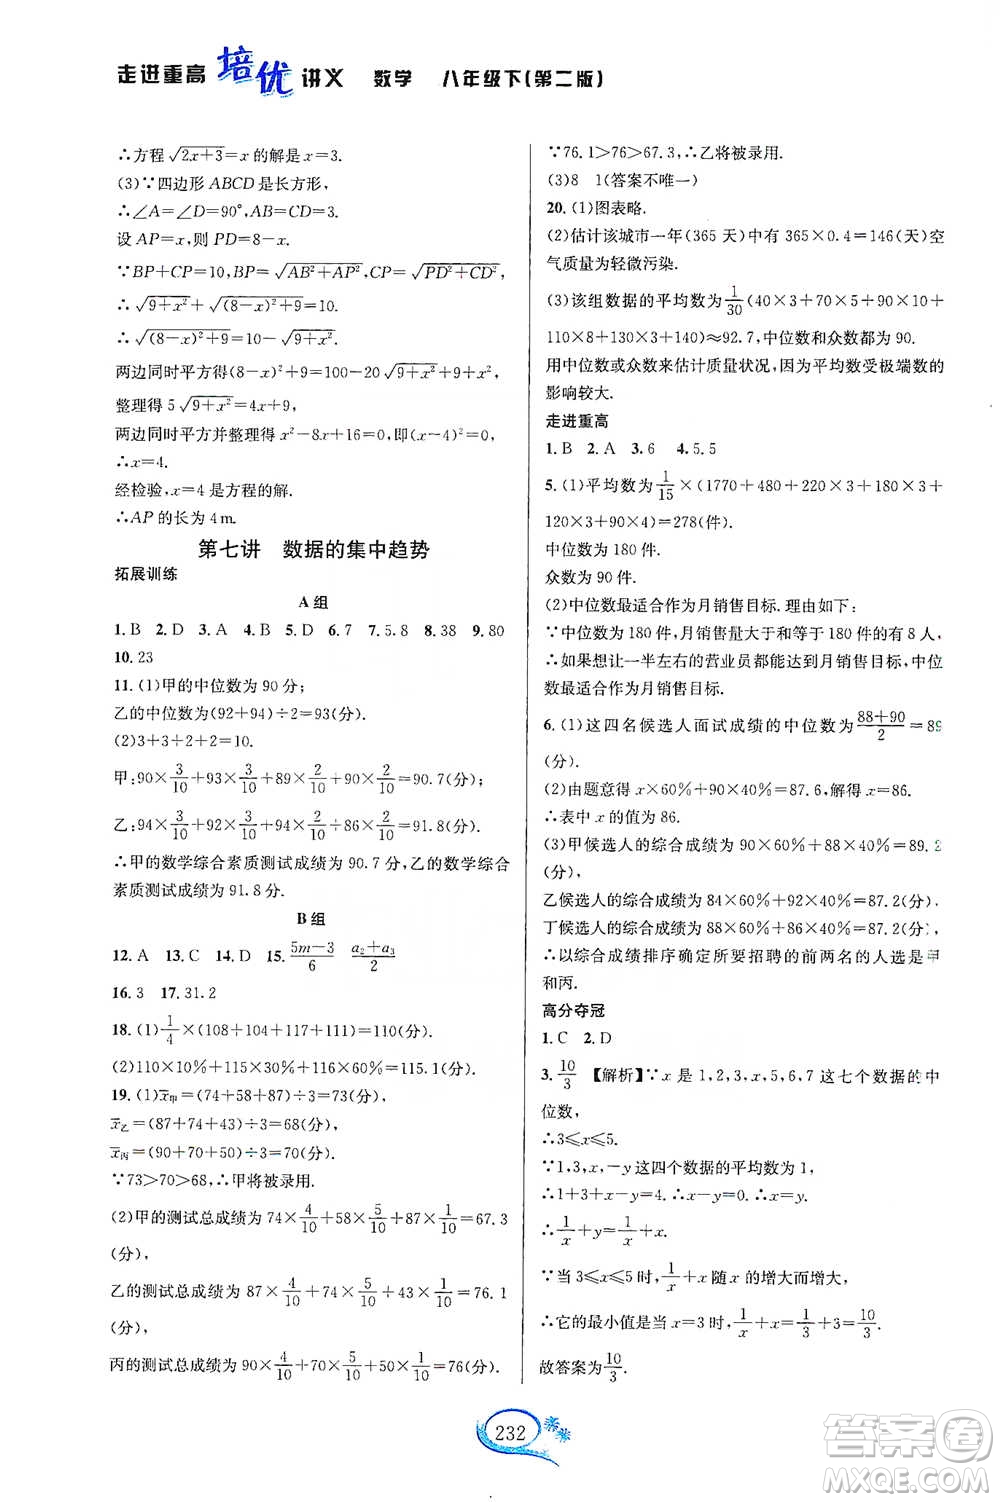 走进重高 培优 讲义 数学 八年级下(第二版)
∴方程√(2x+3)=x 的解是 x=3.
(3)∵四边形 ABCD 是长方形,
∴∠A=∠D=90°,AB=CD=3.
设 AP=x,则 PD=8-x.
∵BP+CP=10,BP=√(AB²+AP²),CP=√(PD²+CD²),
∴√(9+x²)+√((8-x)²+9)=10.
∴√((8-x)²+9)=10-√(9+x²).
两边同时平方得(8-x)²+9=100-20√(9+x²)+9+x²,
整理得 5√(9+x²)=4x+9,
两边同时平方并整理得 x²-8x+16=0,即(x-4)²=0,
∴x=4.
经检验,x=4 是方程的解.
∴AP 的长为 4 m.
第七讲 数据的集中趋势
拓展训练
A 组
1.B 2.D 3.A 4.B 5.D 6.7 7.5.8 8.38 9.80
10.23
11.(1)甲的中位数为 90 分;
乙的中位数为(92+94)÷2=93(分).
(2)3+3+2+2=10.
甲:90×3/10+93×3/10+89×2/10+90×2/10=90.7(分);
乙:94×3/10+92×3/10+94×2/10+86×2/10=91.8(分).
∴甲的数学综合素质测试成绩为 90.7 分,乙的数学综合
素质测试成绩为 91.8 分.
B 组
12.A 13.C 14.D 15.(5m-3)/6 (a₂+a₃)/2
16.3 17.31.2
18.(1)1/4×(108+104+117+111)=110(分).
(2)110×10%+115×30%+108×60%=110.3(分).
19.(1)x̄甲=(74+58+87)÷3=73(分),
x̄乙=(87+74+43)÷3=68(分),
x̄丙=(90+70+50)÷3=70(分).
∵73>70>68,∴甲将被录用.
(2)甲的测试总成绩为 74×4/10+58×5/10+87×1/10=67.3
(分),
乙的测试总成绩为 87×4/10+74×5/10+43×1/10=76.1
(分),
丙的测试总成绩为 90×4/10+70×5/10+50×1/10=76(分).
∵76.1>76>67.3,∴乙将被录用.
(3)8 1(答案不唯一)
20.(1)图表略.
(2)估计该城市一年(365 天)中有 365×0.4=146(天)空
气质量为轻微污染.
(3)该组数据的平均数为1/30(40×3+70×5+90×10+
110×8+130×3+140)≈92.7,中位数和众数都为 90.
用中位数或众数来估计质量状况,因为平均数受极端数的
影响较大.
走进重高
1.B 2.A 3.6 4.5.5
5.(1)平均数为1/15×(1770+480+220×3+180×3+
120×3+90×4)=278(件).
中位数为 180 件.
众数为 90 件.
(2)中位数最适合作为月销售目标. 理由如下:
∵中位数为 180 件,月销售量大于和等于 180 的有 8 人,
∴如果想让一半左右的营业员都能达到月销售目标,中位
数最适合作为月销售目标.
6.(1)这四名候选人面试成绩的中位数为(88+90)/2=89
(分).
(2)由题意得 x×60%+90×40%=87.6,解得 x=86.
∴表中 x 的值为 86.
(3)甲候选人的综合成绩为 90×60%+88×40%=89.2
(分),
乙候选人的综合成绩为 84×60%+92×40%=87.2(分),
丁候选人的综合成绩为 88×60%+86×40%=87.2(分),
∴以综合成绩排序确定所要招聘的前两名的人选是甲
和丙.
高分夺冠
1.C 2.D
3.10/3 【解析】∵x 是 1,2,3,x,5,6,7 这七个数据的中
位数,
∴3≤x≤5.
∵1,3,x,-y 这四个数据的平均数为 1,
∴1+3+x-y=4. ∴x-y=0. ∴x=y.
∴1/x+y=1/x+x.
∵当 3≤x≤5 时,1/x+x 随 x 的增大而增大,
∴它的最小值是当 x=3 时,1/x+x=1/3+3=10/3.
故答案为10/3.
232
答案圈
MXQE.COM